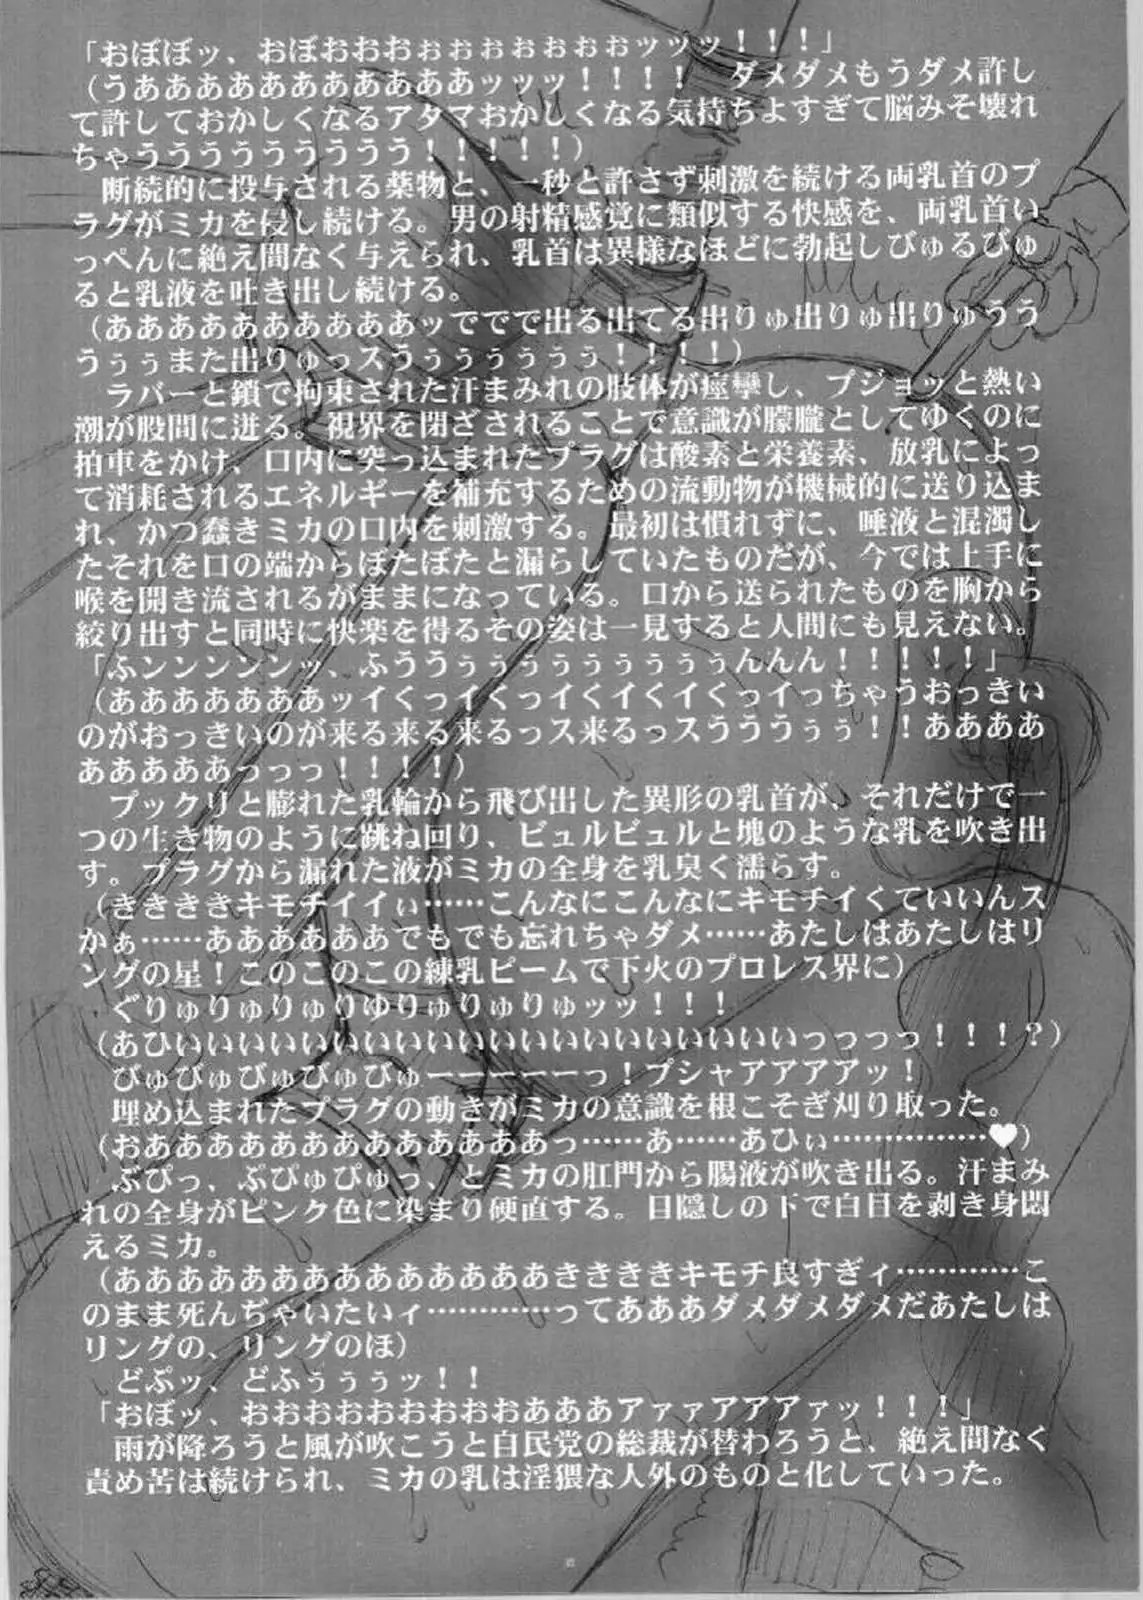 「おぼぼッ、おぼおおおぉぉぉぉぉぉぉッッッ！！！」
（うああああああああああああッッッ！！！！　ダメダメもうダメ許し
て許しておかしくなるアタマおかしくなる気持ちよすぎて脳みそ壊れ
ちゃううううううううう！！！！！）
　断続的に投与される薬物と、一秒と許さず刺激を続ける両乳首のプ
ラグがミカを侵し続ける。男の射精感覚に類似する快感を、両乳首い
っぺんに絶え間なく与えられ、乳首は異様なほどに勃起しびゅるびゅ
ると乳液を吐き出し続ける。
（ああああああああああッででで出る出てる出りゅ出りゅ出りゅうう
うぅぅまた出りゅっスうぅぅぅぅぅぅ！！！！）
　ラバーと鎖で拘束された汗まみれの肢体が痙攣し、プジョッと熱い
潮が股間に迸る。視界を閉ざされることで意識が朦朧としてゆくのに
拍車をかけ、口内に突っ込まれたプラグは酸素と栄養素、放乳によっ
て消耗されるエネルギーを補充するための流動物が機械的に送り込ま
れ、かつ蠢きミカの口内を刺激する。最初は慣れずに、唾液と混濁し
たそれを口の端からぼたぼたと漏らしていたものだが、今では上手に
喉を開き流されるがままになっている。口から送られたものを胸から
絞り出すと同時に快楽を得るその姿は一見すると人間にも見えない。
「ふンンンンンッ、ふううぅぅぅぅぅぅぅぅぅんんん！！！！！」
（あああああああッイくっイくっイくイくイくっイっちゃうおっきい
のがおっきいのが来る来る来るっス来るっスうううぅぅ！！ああああ
あああああっっっ！！！！）
　プックリと膨れた乳輪から飛び出した異形の乳首が、それだけで一
つの生き物のように跳ね回り、ビュルビュルと塊のような乳を吹き出
す。プラグから漏れた液がミカの全身を乳臭く濡らす。
（きききキモチイイぃ……こんなにこんなにキモチイくていいんス
かぁ……ああああああでもでも忘れちゃダメ……あたしはあたしはリ
ングの星！このこのこの練乳ビームで下火のプロレス界に）
　ぐりゅりゅりゅりゆりゅりゅりゅッッ！！！
（あひいいいいいいいいいいいいいいいいいいいっっっっ！！！？）
　びゅびゅびゅびゅびゅーーーーーっ！ブシャアアアアッ！
　埋め込まれたプラグの動きがミカの意識を根こそぎ刈り取った。
（おあああああああああああああっ……あ……あひぃ……………♥）
　ぶぴっ、ぷぴゅぴゅっ、とミカの肛門から腸液が吹き出る。汗まみ
れの全身がピンク色に染まり硬直する。目隠しの下で白目を剥き身悶
えるミカ。
（ああああああああああああああききききキモチ良すぎィ…………こ
のまま死んぢゃいたいィ…………ってあああダメダメダメだあたしは
リングの、リングのほ）
　どぷッ、どふぅぅぅッ！！
「おぼッ、おおおおおおおおおあああアァァアアアァッ！！！」
　雨が降ろうと風が吹こうと自民党の総裁が替わろうと、絶え間なく
責め苦は続けられ、ミカの乳は淫猥な人外のものと化していった。